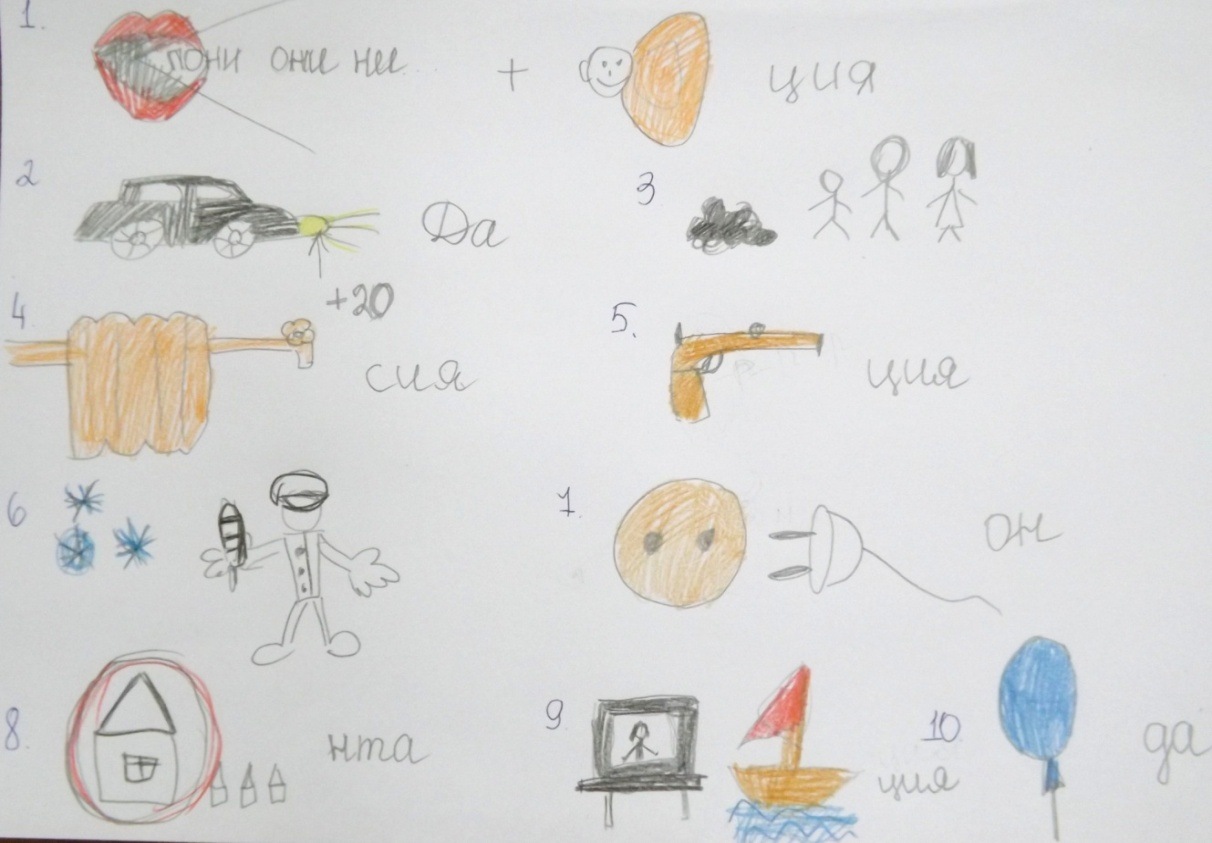 1. пони они ни + ция
2 Да
3
+20
4 сия
5. ция
6
7. он
8. нта
9 ция
10 да